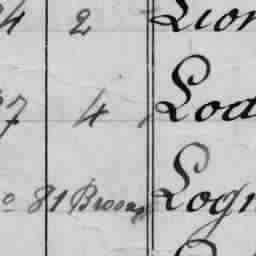 4 2 Lion
7 4 Lod
o 81 Broom Logn